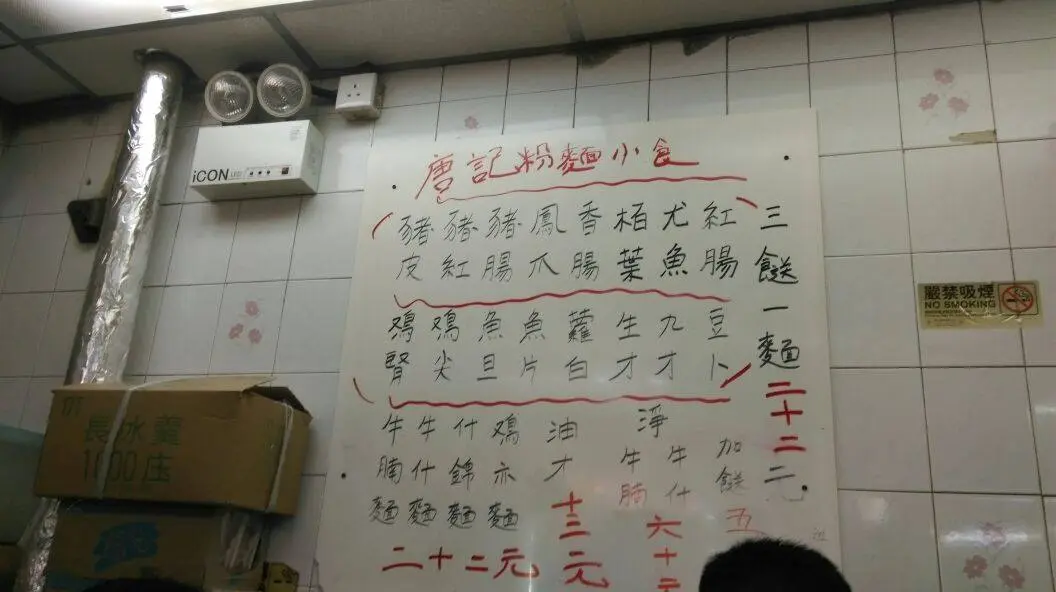 唐記粉麵小食
豬皮
豬紅
豬腸
鳳爪
香腸
栢葉
尤魚
紅腸
鸡腎
鸡尖
魚旦
魚片
蘿白
生才
九才
豆卜
三餸一麵二十二
牛腩麵
牛什麵
什錦麵
鸡亦麵
二十二元
油才
十三元
淨
牛腩
牛什
六十元
加餸五
iCON LED
嚴禁吸煙
NO SMOKING